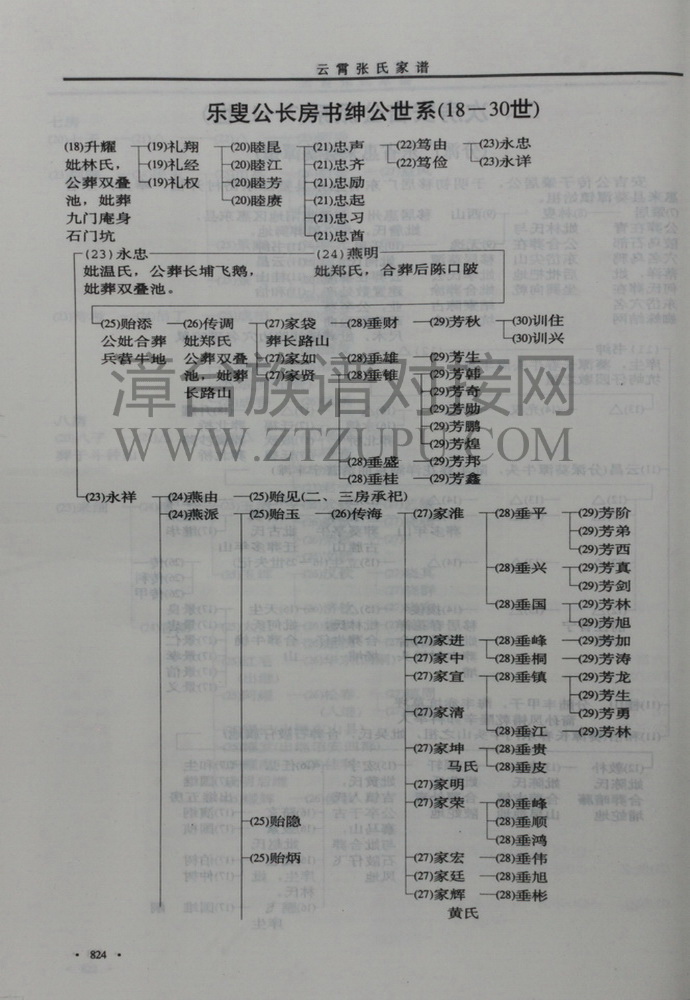 云霄张氏家谱
乐叟公长房书绅公世系(18－30世)
(18)升耀 (19)礼翔 (20)睦昆 (21)忠声 (22)笃由 (23)永忠
妣林氏， (19)礼经 (20)睦江 (21)忠齐 (22)笃俭 (23)永详
公葬双叠 (19)礼权 (20)睦芳 (21)忠励
池，妣葬 (20)睦赓 (21)忠起
九门庵身 (21)忠习
石门坑 (21)忠酋
(23)永忠 (24)燕明
妣温氏，公葬长埔飞鹅， 妣郑氏，合葬后陈口陂
妣葬双叠池。
(25)贻添 (26)传调 (27)家袋 (28)垂财 (29)芳秋 (30)训住
公妣合葬 妣郑氏 葬长路山 (30)训兴
兵营牛地 公葬双叠 (27)家如 (28)垂雄 (29)芳生
池，妣葬 (27)家贤 (28)垂锥 (29)芳韩
长路山 (29)芳奇
(29)芳勋
(29)芳鹏
(29)芳煌
(28)垂盛 (29)芳邦
(28)垂桂 (29)芳鑫
(23)永祥 (24)燕由 (25)贻见(二、三房承祀)
(24)燕派 (25)贻玉 (26)传海 (27)家淮 (28)垂平 (29)芳阶
(29)芳弟
(29)芳西
(28)垂兴 (29)芳真
(29)芳剑
(28)垂国 (29)芳林
(29)芳旭
(27)家进 (28)垂峰 (29)芳加
(27)家中 (28)垂桐 (29)芳涛
(27)家宣 (28)垂镇 (29)芳龙
(29)芳生
(27)家清 (29)芳勇
(28)垂江 (29)芳林
(27)家坤 (28)垂贵
马氏 (28)垂皮
(27)家明
(27)家荣 (28)垂峰
(25)贻隐 (28)垂顺
(28)垂鸿
(25)贻炳 (27)家宏 (28)垂伟
(27)家廷 (28)垂旭
(27)家辉 (28)垂彬
黄氏
· 824 ·
漳台族谱对接网
WWW.ZTZUPU.COM